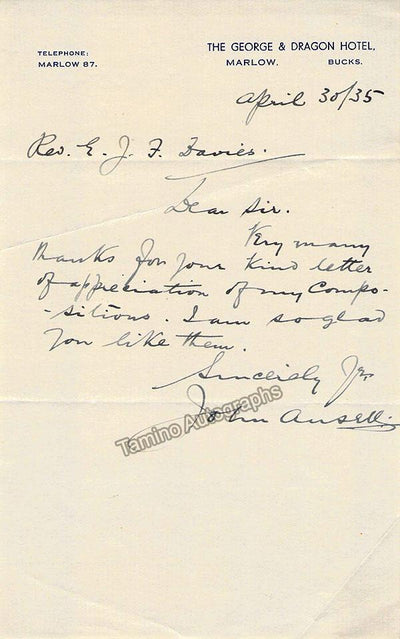 TELEPHONE:
MARLOW 87.
THE GEORGE & DRAGON HOTEL,
MARLOW. BUCKS.
April 30/35
Rev. E. J. F. Davies.
Dear Sir.
Very many
thanks for your kind letter
of appreciation of my Compo-
-sitions. I am so glad
you like them.
Sincerely Yrs
John Ansell.
Tamino Autographs